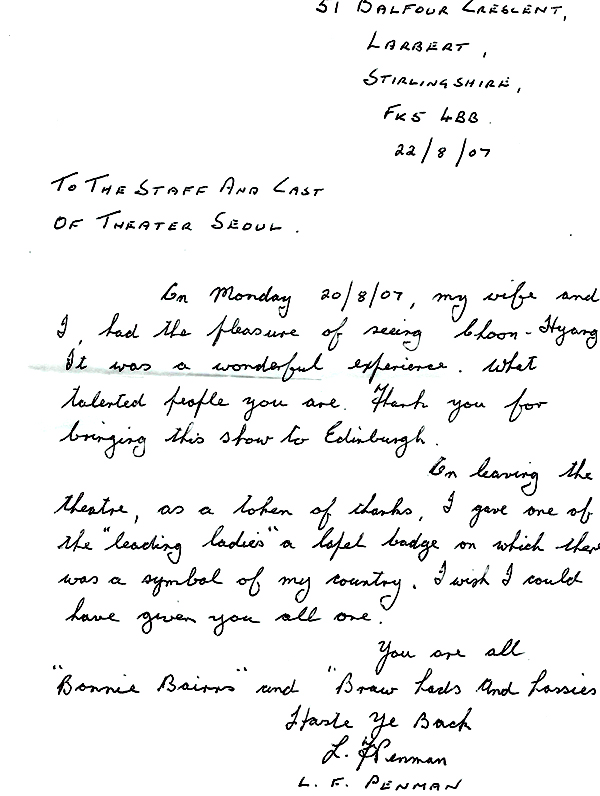 51 BALFOUR CRESCENT,
LARBERT,
STIRLINGSHIRE,
FK5 4BB.
22/8/07
TO THE STAFF AND CAST
OF THEATER SEOUL.
On Monday 20/8/07, my wife and
I, had the pleasure of seeing Choon-Hyang
It was a wonderful experience. What
talented people you are. Thank you for
bringing this show to Edinburgh.
On leaving the
theatre, as a token of thanks, I gave one of
the "leading ladies" a lapel badge on which ther
was a symbol of my country. I wish I could
have given you all one.
You are all
"Bonnie Bairns" and "Braw Lads And Lassies
Haste Ye Back
L. F Penman
L. F. PENMAN